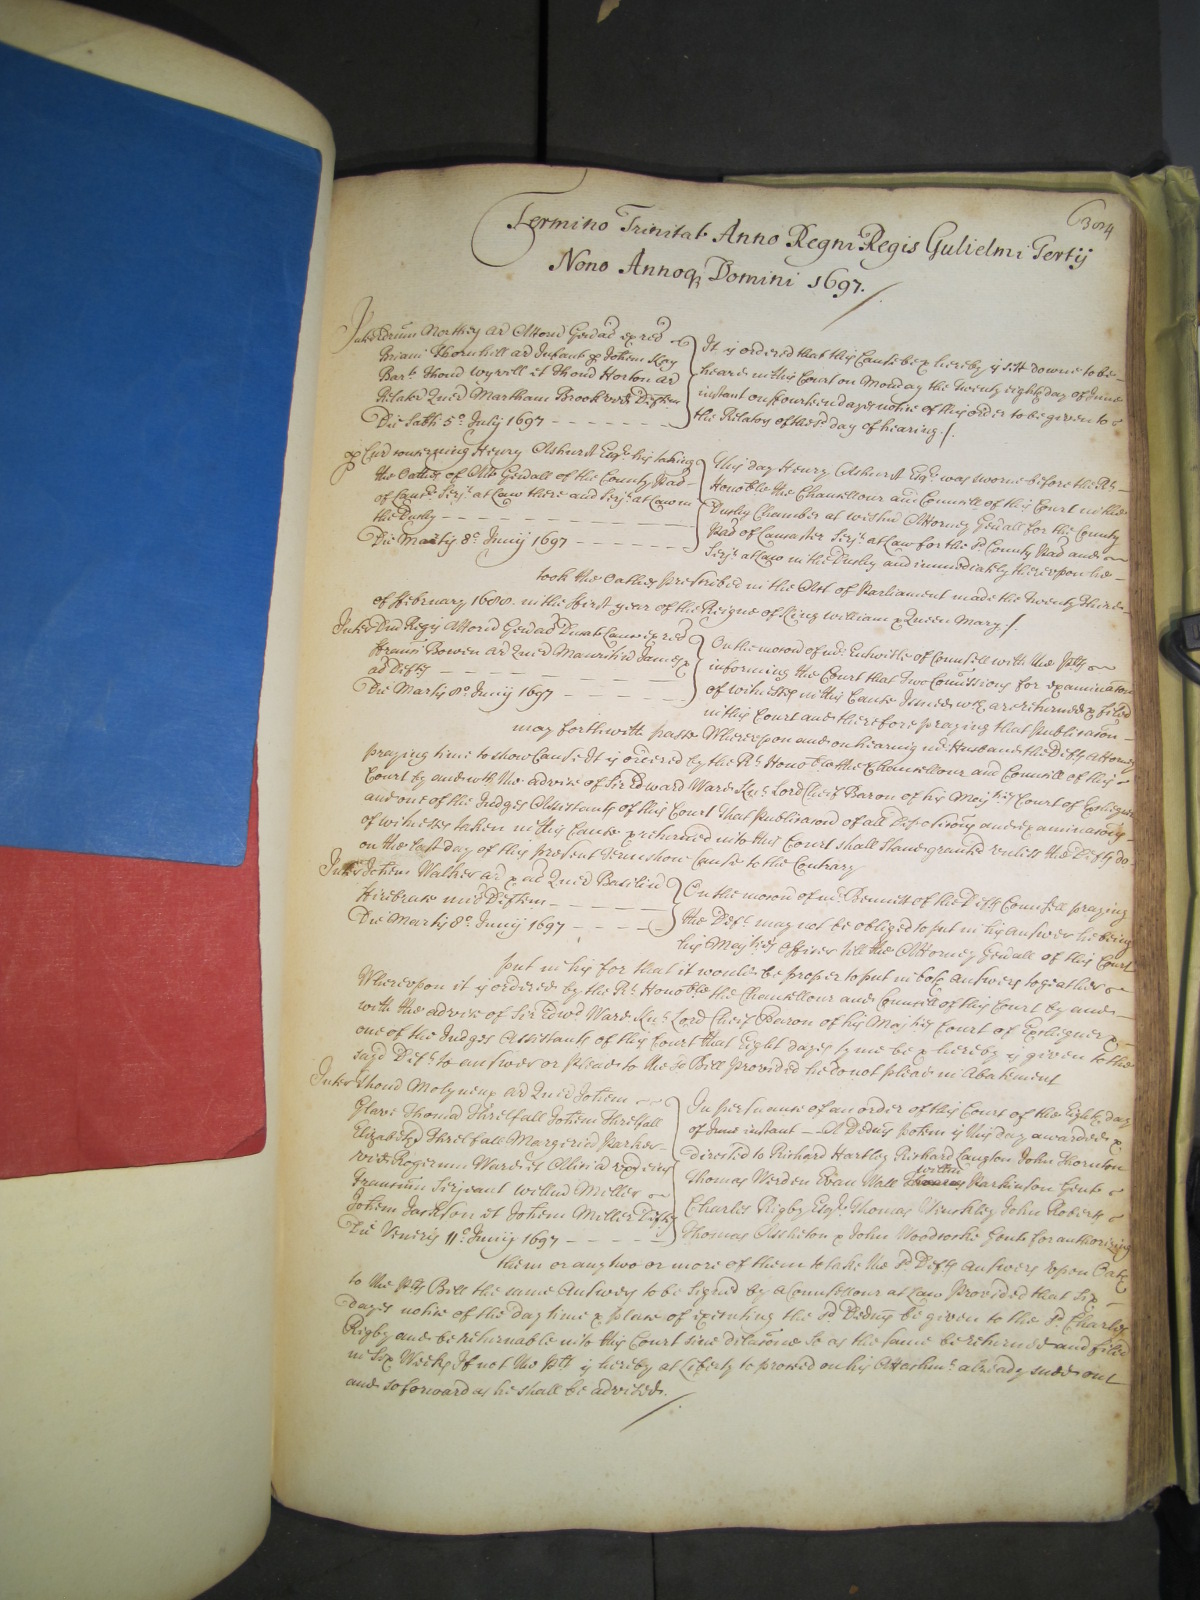 304
Termino Trinitat Anno Regni Regis Gulielmi Tertij
Nono Annoq Domini 1697.
Inter Northey ar Attorn Genal ex rel
Thornhill ar Infant & Johem Kay
Bart Thoma Wyvill et Thoma Horton ar
Relator Quer Martham Brook vid Deften
Die Sabti 5o Julij 1697
It is ordered that this Cause be & hereby is sett downe to be
heard in this Court on Monday the Twenty eighth day of June
instant on fourteen dayes notice of this order to be given to
the Relators of the sd day of hearing ./.
concerning Henry Ashurst Esqr his taking
the Oathes of Atto Genall of the County Pad
of Lancr Serjt at Law there and Serjt at Law in
the Duchy
Die Martij 8o Junij 1697
This day Henry Ashurst Esqr was sworne before the Rt
Honoble the Chancellour and Councill of this Court in the
Duchy Chamber at Attorney Genall for the County
Pad of Lancaster Serjt at Law for the sd County Pad and
Serjt at Law in the Duchy and immediately thereupon he
took the Oathes prescribed in the Act of Parliament made the Twenty
of February 1688. in the first year of the Reigne of King William & Queen Mary ./.
Inter Dni Regis Attorn Genal Ducat Lanc ex rel
Bowen ar Quer Mauritiu James
ar Defts
Die Martij 8o Junij 1697
On the mocon of mr Entwisle of Councell with the plts
informing the Court that Two Comissions for examinacon
of witnesses in this Cause Issued wch are returned & filed
in this Court and therefore praying that publicacon
may forthwith passe Whereupon and on hearing mr Husband the Defts Attorney
praying time to show Cause It is ordered by the Rt Honoble the Chancellour and Councill of this
Court by and with the advice of Sir Edward Ward Knt Lord Cheif Baron of his Majties Court of Exchequer
and one of the Judges Assistants of this Court That publicacon of all Deposicons and examinacons
of witnesses taken in this Cause & returned into this Court shall stand granted unless the Defts do
on the last day of this present Terme show Cause to the Contrary
Inter Johem Walker ar & al Quer Basiliu
Firebrace mil Deften
Die Martij 8o Junij 1697
On the mocon of mr Bennett of the Defts Councell praying
the Deft may not be obliged to put in his Answer he being
his Majties Officer till the Attorney Genall of this Court
put in his for that it would be proper to put in both Answers together
Whereupon it is ordered by the Rt Honoble the Chancellour and Councill of this Court by and
with the advice of Sir Edwd Ward Knt Lord Cheif Baron of his Majties Court of Exchequer &
one of the Judges Assistants of this Court that Eight dayes tyme be & hereby is given to the
sayd Deft to answer or plead to the sd Bill Provided he do not plead in Abatement
Inter Thoma Molyneux ar Quer Johem
Glave Thoma Threlfall Johem Threlfall
Elizabeth Threlfall Margeria Parker
vid Rogerum Ward et Alicia
Franciscum Serjeant Willm Miller
Johem Jackson et Johem Miller Defts
Die Veneris 11o Junij 1697
In persuance of an order of this Court of the Eighth day
of June instant A Dedus potem is this day awarded &
directed to Richard Hartley Richard Langton John Thornton
Thomas Werden Evan Wall William Parkinson Gents
Charles Rigby Esqr Thomas Hinckley John Roberts
Thomas Assheton & John Gents for authorizing
them or any two or more of them to take the sd Defts Answers upon Oath
to the plts Bill the same Answer to be signed by a Councellour at Law Provided that Six
dayes notice of the day time & place of executing the sd Dedus be given to the sd Charles
Rigby and be returnable into this Court sine dilacone so as the same be returned and filed
in Six Weeks If not the plt is hereby at liberty to proceed on his Attachmt already sued out
and so forward as he shall be advised.